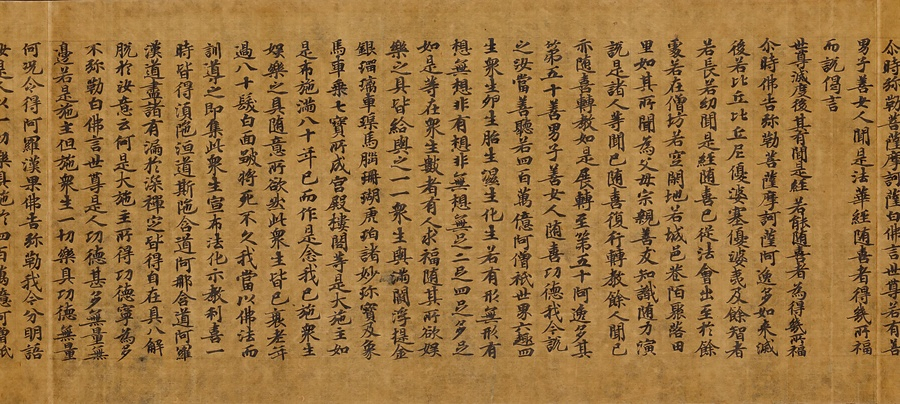 尒時弥勒菩薩摩訶薩白佛言世尊若有善
男子善女人聞是法華經随喜者得幾所福
而說偈言
世尊滅度後其有聞是經若能随喜者為得幾所福
尒時佛告弥勒菩薩摩訶薩阿逸多如来滅
後若比丘比丘尼優婆塞優婆夷及餘智者
若長若幼聞是經随喜已從法會出至於餘
處若在僧坊若空閑地若城邑巷陌聚落田
里如其所聞為父母宗親善友知識随力演
說是諸人等聞已随喜復行轉教餘人聞已
亦随喜轉教如是展轉至第五十阿逸多其
第五十善男子善女人随喜功德我今說
之汝當善聽若四百萬億阿僧祇世界六趣四
生衆生卵生胎生濕生化生若有形無形有
想無想非有想非無想無足二足四足多足
如是等在衆生數者有人求福随其所欲娛
樂之具皆給與之一一衆生與滿閻浮提金
銀瑠璃車璖馬腦珊瑚虎珀諸妙珎寳及象
馬車乘七寳所成宮殿樓閣等是大施主如
是布施滿八十年已而作是念我已施衆生
娛樂之具随意所欲然此衆生皆已衰老年
過八十髮白面皺將死不久我當以佛法而
訓導之即集此衆生宣布法化示教利喜一
時皆得須陁洹道斯陁含道阿那含道阿羅
漢道盡諸有漏於深禪定皆得自在具八解
脫於汝意云何是大施主所得功德寧為多
不弥勒白佛言世尊是人功德甚多無量無
邊若是施主但施衆生一切樂具功德無量
何況令得阿羅漢果佛告弥勒我今分明語
汝是人以一切樂具施於四百萬億阿僧祇